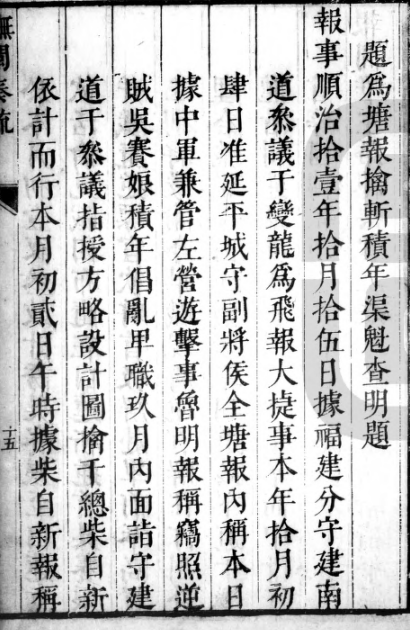 題為塘報擒斬積年渠魁查明題
報事順治拾壹年拾月拾伍日據福建分守建南
道叅議于變龍為飛報大捷事本年拾月初
肆日准延平城守副將侯全塘報內稱本日
據中軍兼管左營遊擊事魯明報稱竊照逆
賊吳賽娘積年倡亂卑職玖月內面詰守建
道于叅議指授方略設計圖擒千總柴自新
依計而行本月初貳日午時據柴自新報稱
撫閩奏疏
十五